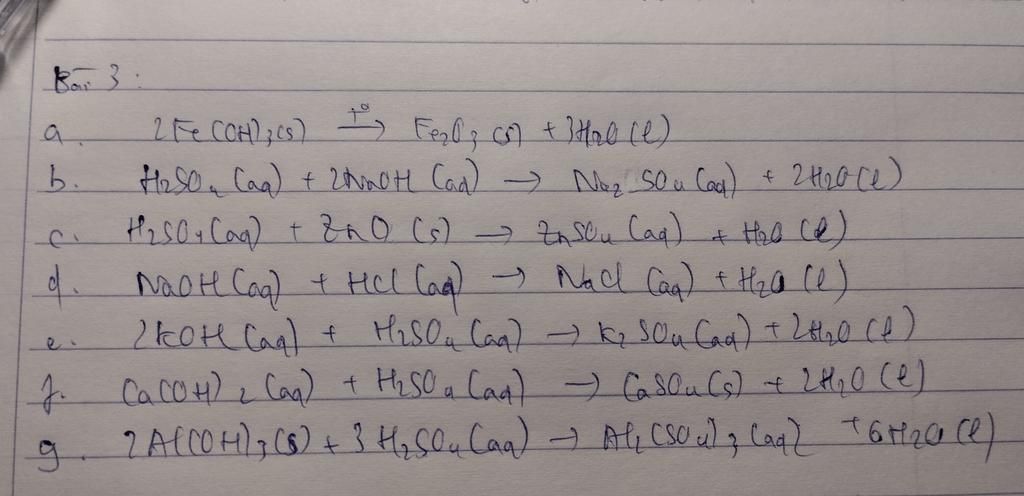 Bài 3:
a. 2Fe(OH)3(s) t°→ Fe2O3(s) + 3H2O(l)
b. H2SO4(aq) + 2NaOH(aq) → Na2SO4(aq) + 2H2O(l)
c. H2SO4(aq) + ZnO(s) → ZnSO4(aq) + H2O(l)
d. NaOH(aq) + HCl(aq) → NaCl(aq) + H2O(l)
e. 2KOH(aq) + H2SO4(aq) → K2SO4(aq) + 2H2O(l)
f. Ca(OH)2(aq) + H2SO4(aq) → CaSO4(s) + 2H2O(l)
g. 2Al(OH)3(s) + 3H2SO4(aq) → Al2(SO4)3(aq) + 6H2O(l)